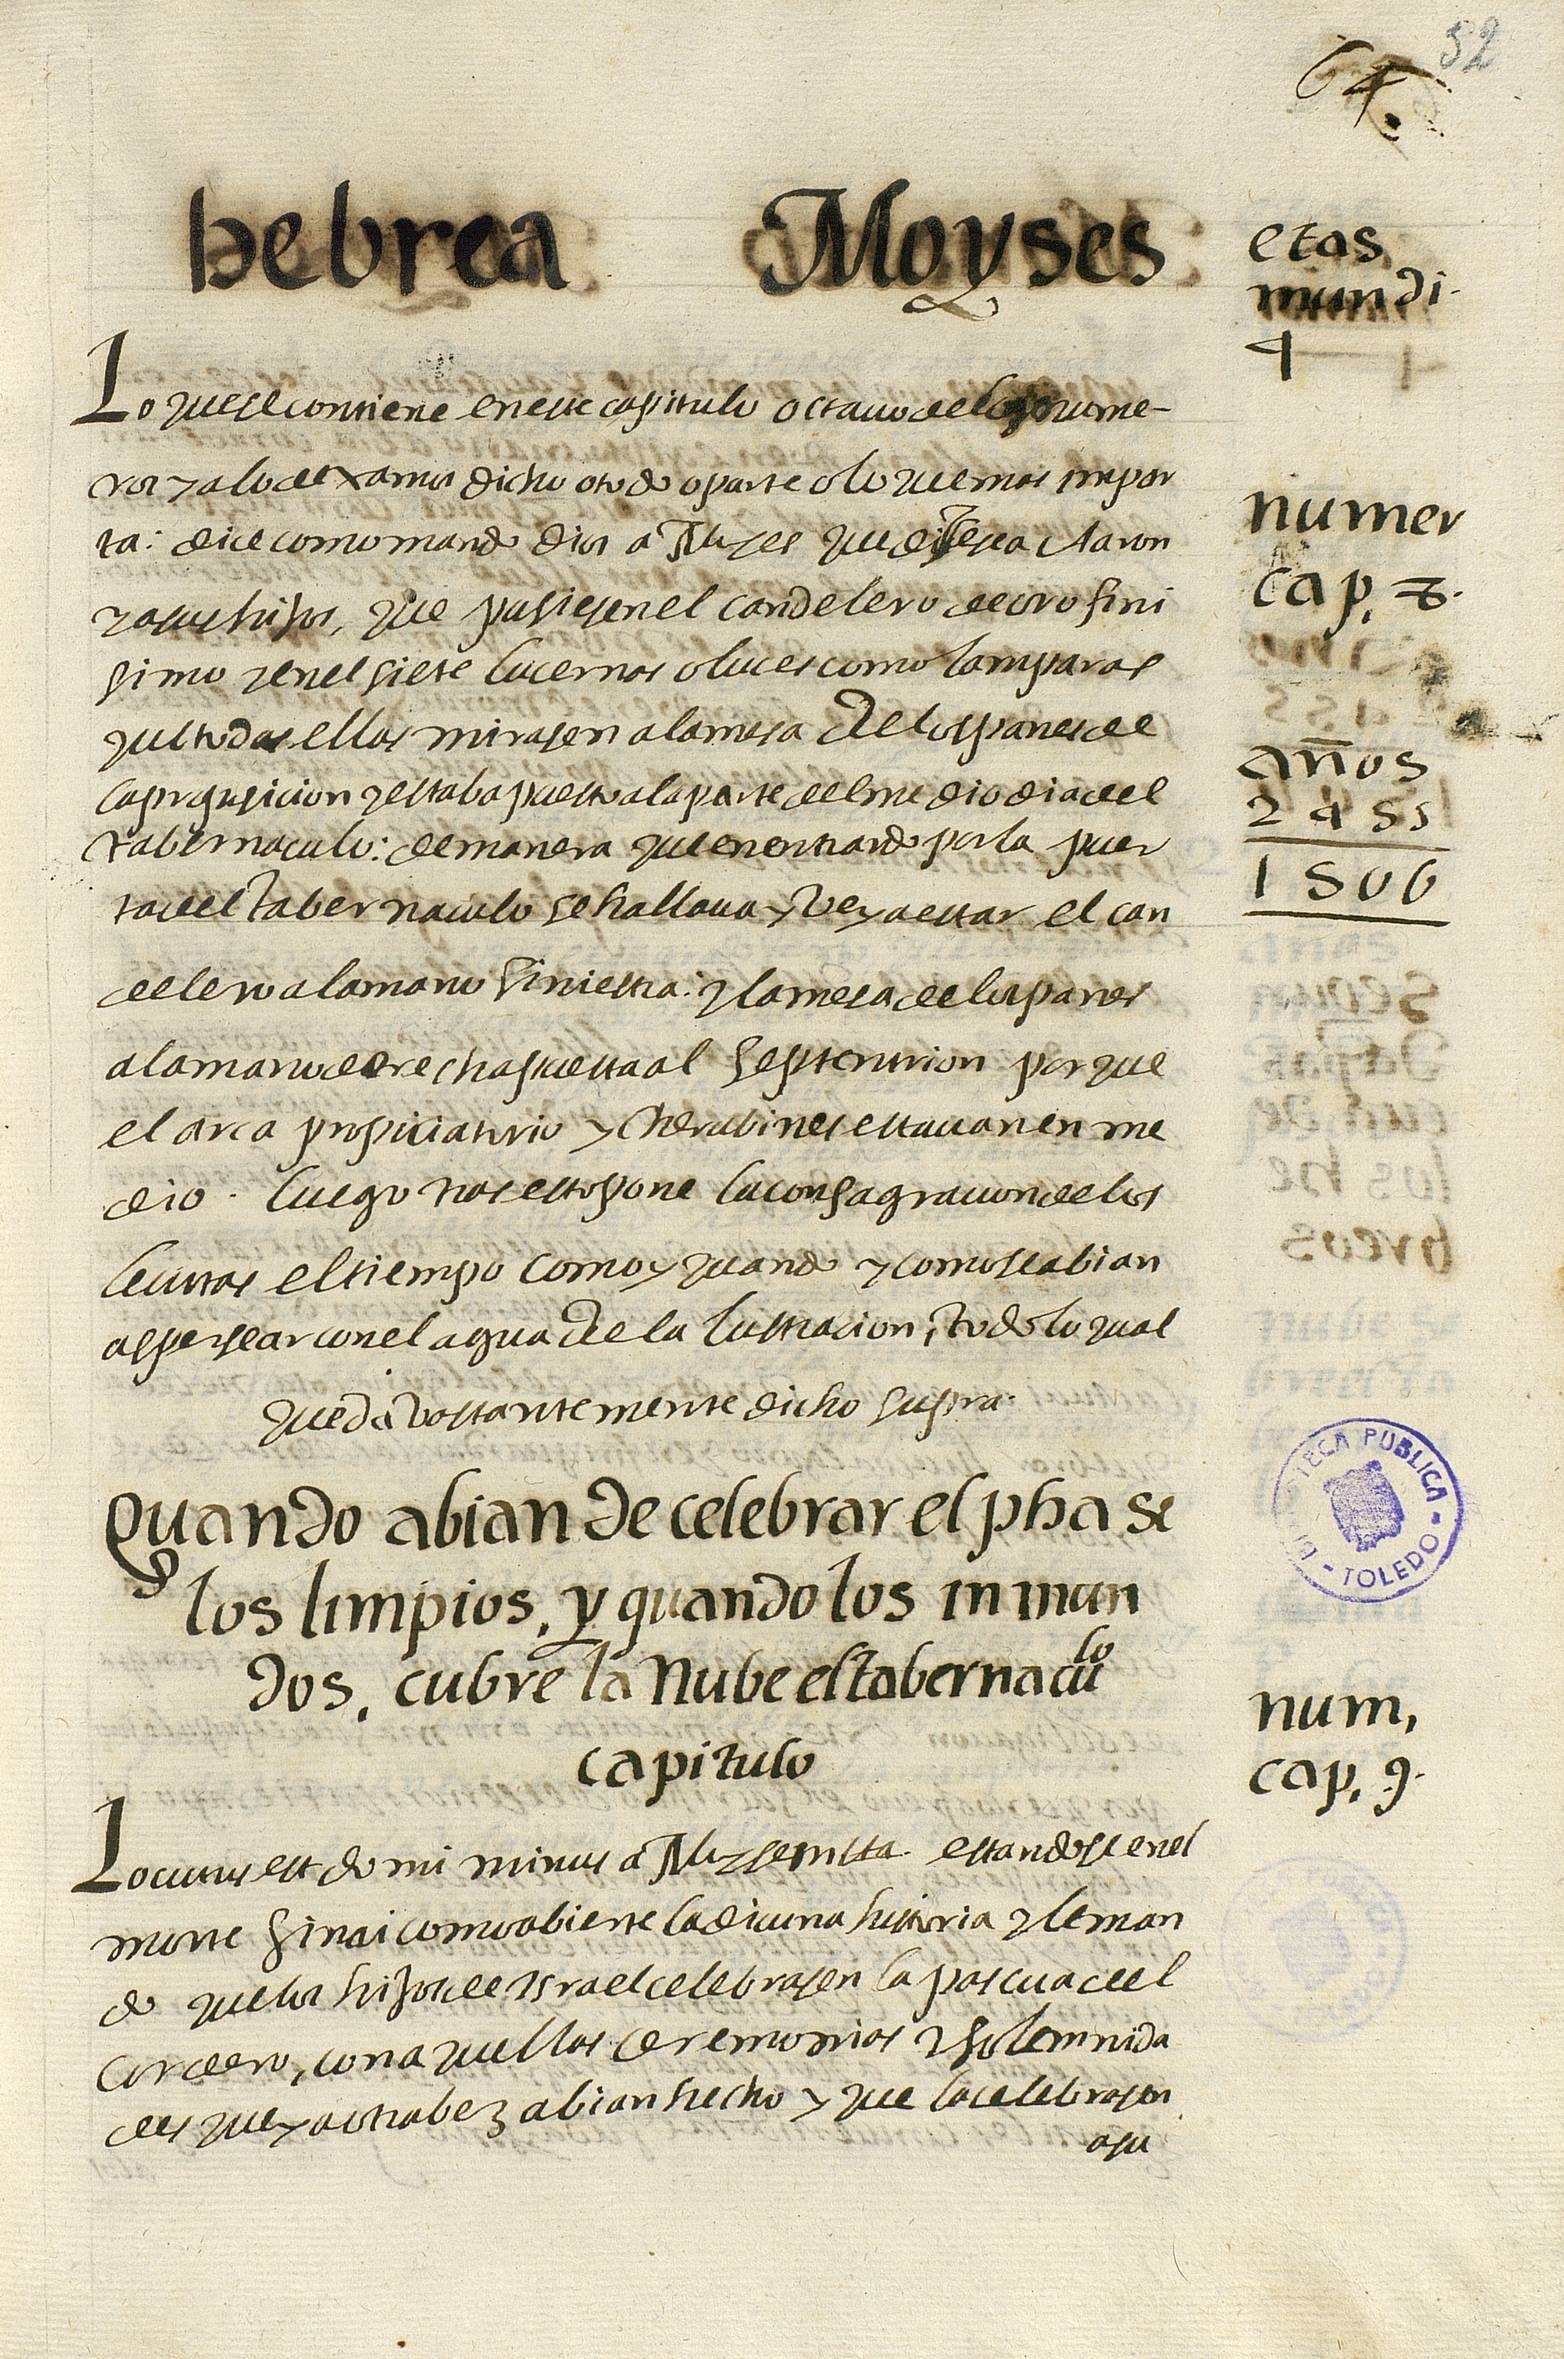 52
64.
hebrea Moyses
etas
mundi.
4
Lo que se contiene en este capitulo octauo de los nume-
ros ya lo dexamos dicho o todo o parte o lo que mas impor
ta: dice como mando dios a Moyses que dixese a Aaron
y a sus hijos, que pusiesen el candelero de oro fini
simo y en el siete lucernas o luces como lamparas
que todas ellas mirasen a la mesa de los panes de
la proposicion y estaba puesto a la parte del medio dia de el
tabernaculo: de manera que en entrando por la puer
ta de el tabernaculo se hallaua y veya estar el can
delero a la mano siniestra: y la mesa de los panes
a la mano derecha puesta al septentrion porque
el arca propiciatorio y cherubines estauan en me
dio. luego tras esto pone la consagracion de los
leuitas el tiempo como y quando y como se abian
aspersear con el agua de la lustracion, todo lo qual
queda bastantemente dicho supra.
numer
cap, 8.
años
2455
1506
Quando abian de celebrar el phase
los limpios, y quando los inmun
dos, cubre la Nube el tabernaculo
capitulo
num,
cap, 9.
BIBLIOTECA PUBLICA - TOLEDO -
Locutus est dominus a Moyse estandose en el
monte sinai como abierte la diuina historia y le man
do que los hijos de Israel celebrasen la pascua de el
cordero, con aquellas ceremonias y solemnida
des que ya otra bez abian hecho y que la celebrasen
asu